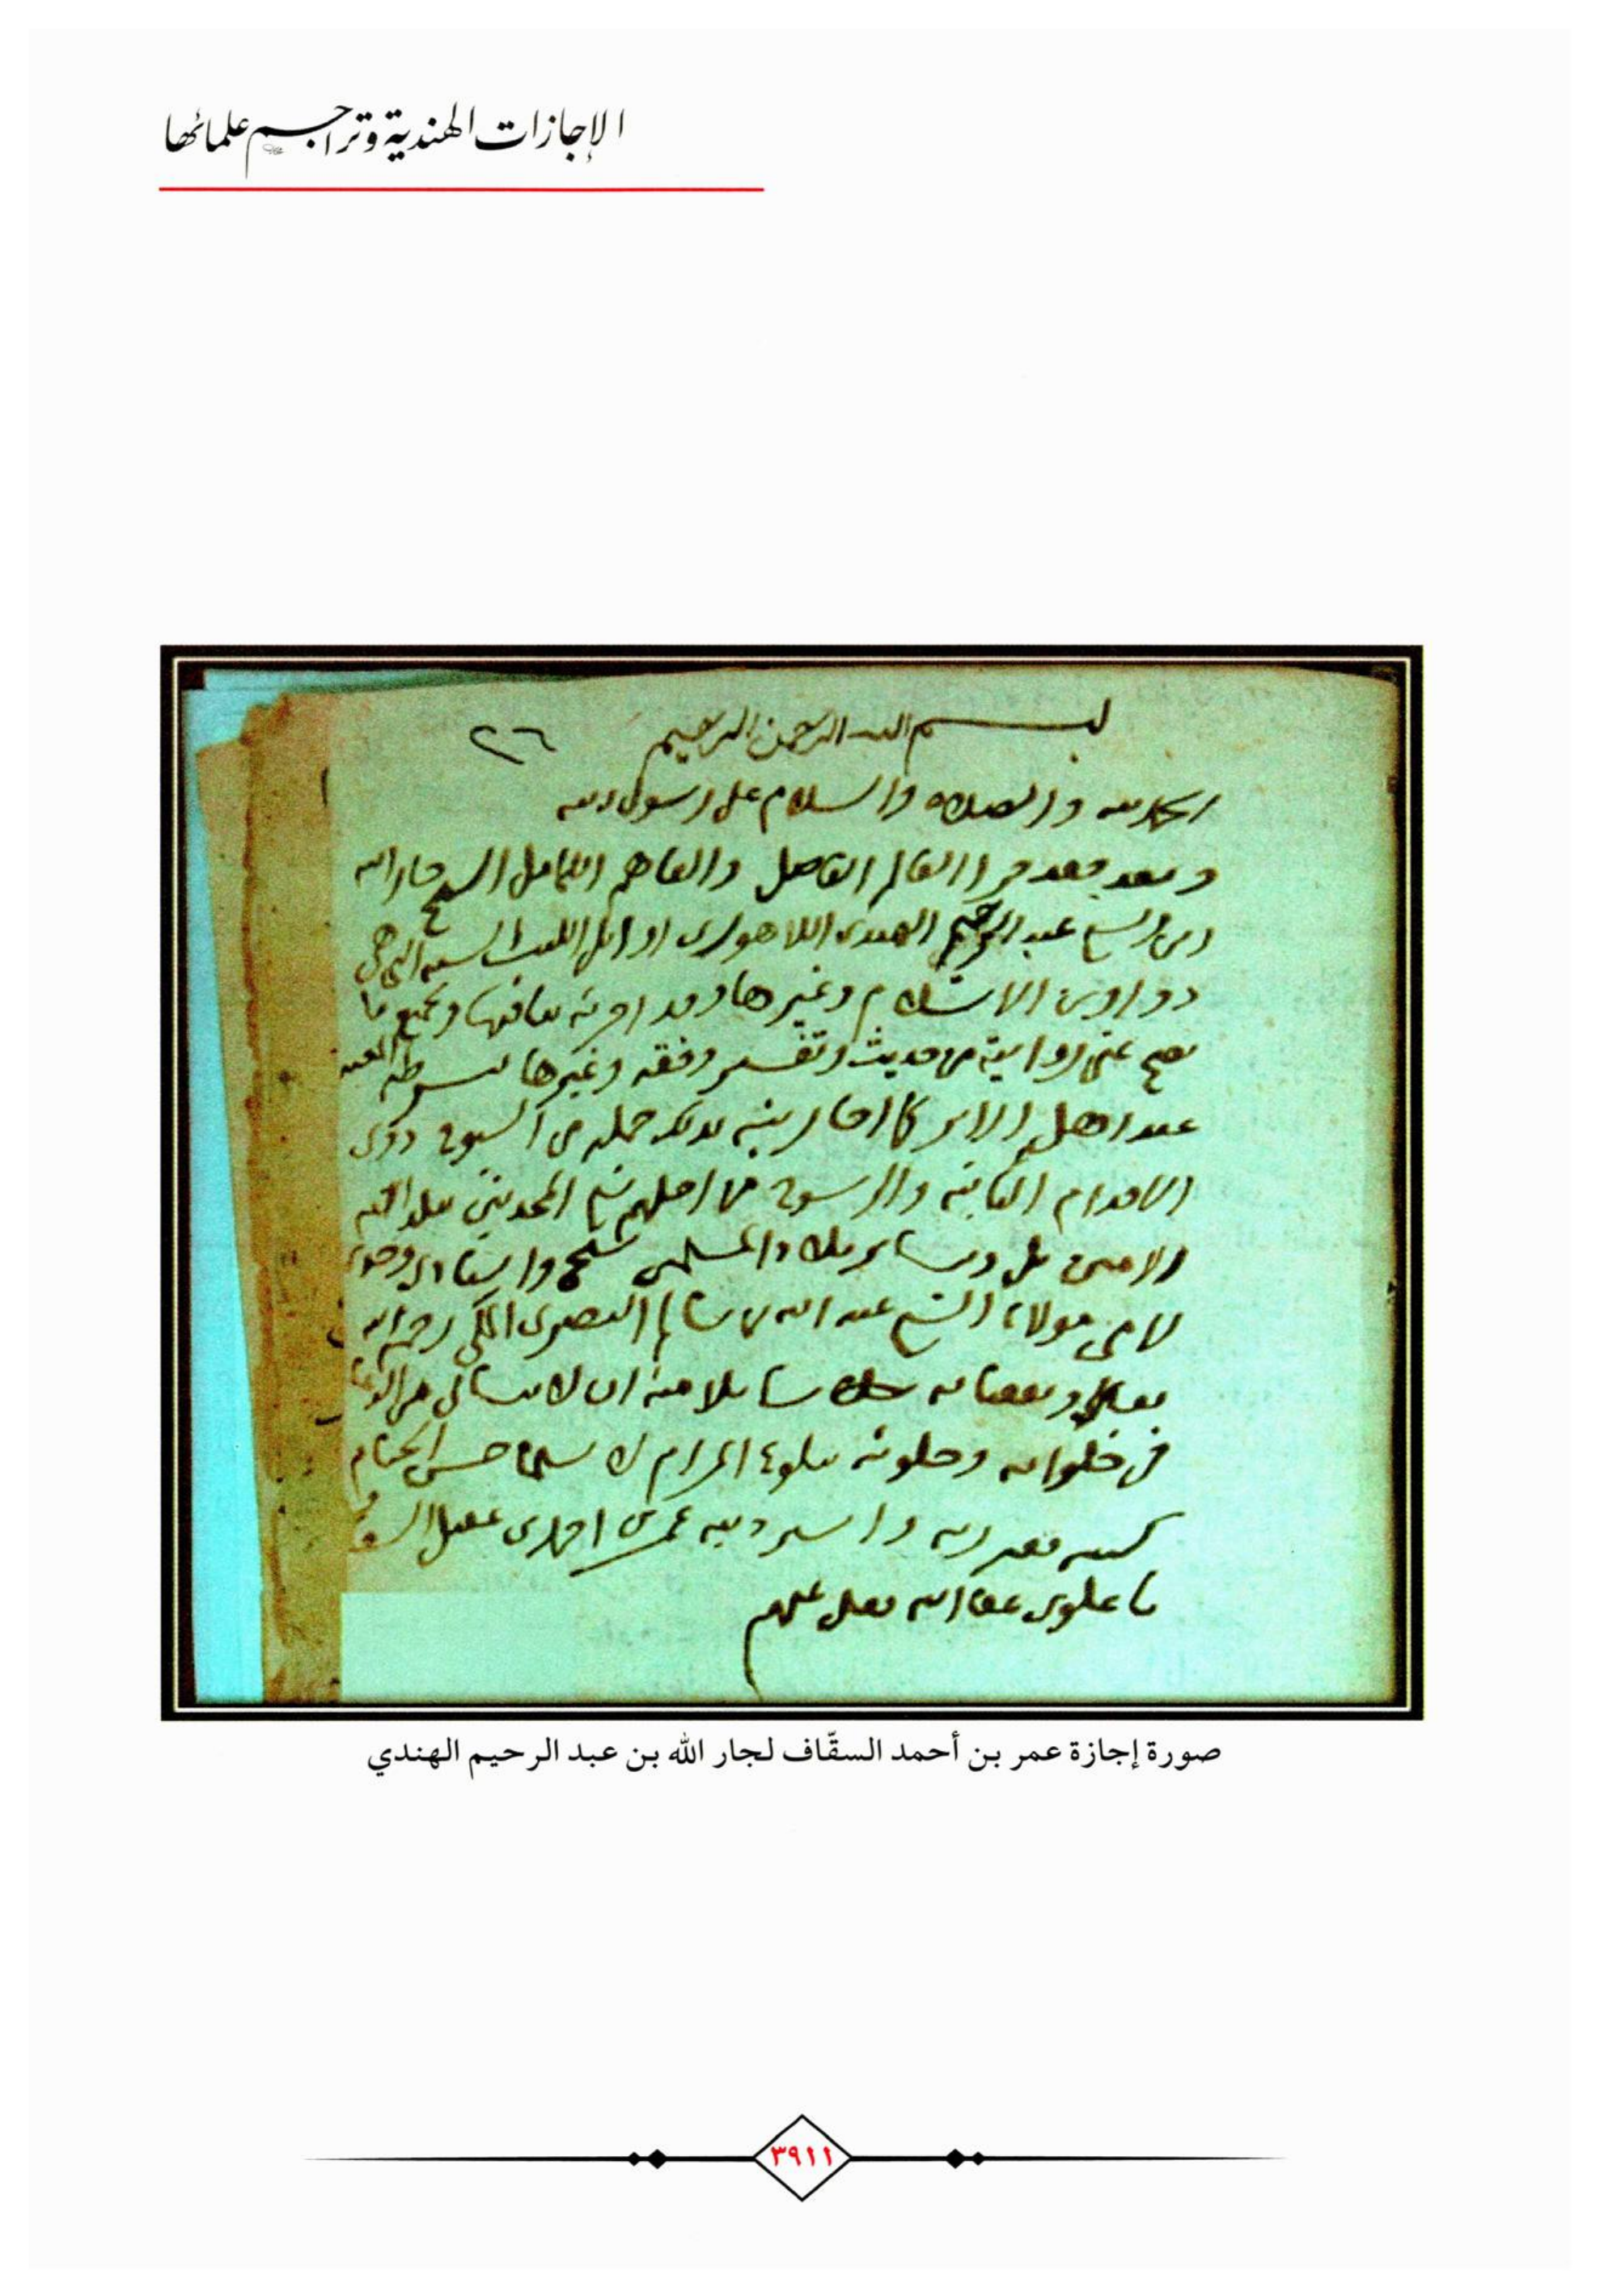 الإجازات الهندية وتراجم علمائها
بسم الله الرحمن الرحيم ٢٦
الحمد لله والصلاة والسلام على رسول الله
وبعد فقد قرا العالم الفاضل والفاهم الكامل الشيخ جار الله
بن الشيخ عبد الرحيم الهندي اللاهوري اوائل الكتب الستة التي هي
دواوين الاسلام وغيرها وقد اجزته بباقيها وبجميع ما
يصح عني روايته من حديث وتفسير وفقه وغيرها بشرطه المعتبر
عند اهل الاثر كما اجازني بذلك جملة من الشيوخ ذوي
الاقدام الثابتة والرسوخ من اجلهم شيخ المحدثين ببلد الله
الامين بل وسائر بلاد المسلمين شيخي واستاذي وجدي
لامي مولانا الشيخ عبد الله بن سالم البصري المكي رحمه الله
تعالى ونفعنا به سائلا منه ان لا ينساني من الدعا
في خلواته وجلواته ببلوغ المرام لا سيما حسن الختام
كتبه فقير ربه واسير ذنبه عمر بن احمد بن عقيل السقاف
باعلوي عفا الله تعالى عنهم
صورة إجازة عمر بن أحمد السقّاف لجار الله بن عبد الرحيم الهندي
٣٩١١